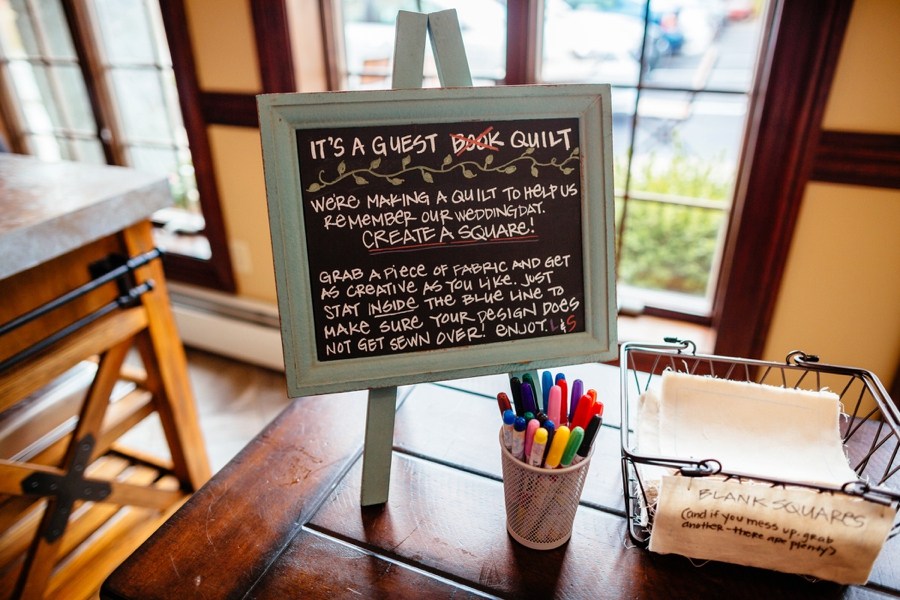 IT'S A GUEST BOOK QUILT
WE'RE MAKING A QUILT TO HELP US
REMEMBER OUR WEDDING DAY.
CREATE A SQUARE!
GRAB A PIECE OF FABRIC AND GET
AS CREATIVE AS YOU LIKE. JUST
STAY INSIDE THE BLUE LINE TO
MAKE SURE YOUR DESIGN DOES
NOT GET SEWN OVER! ENJOY. L&S
BLANK SQUARES
(and if you mess up, grab
another-there are plenty)